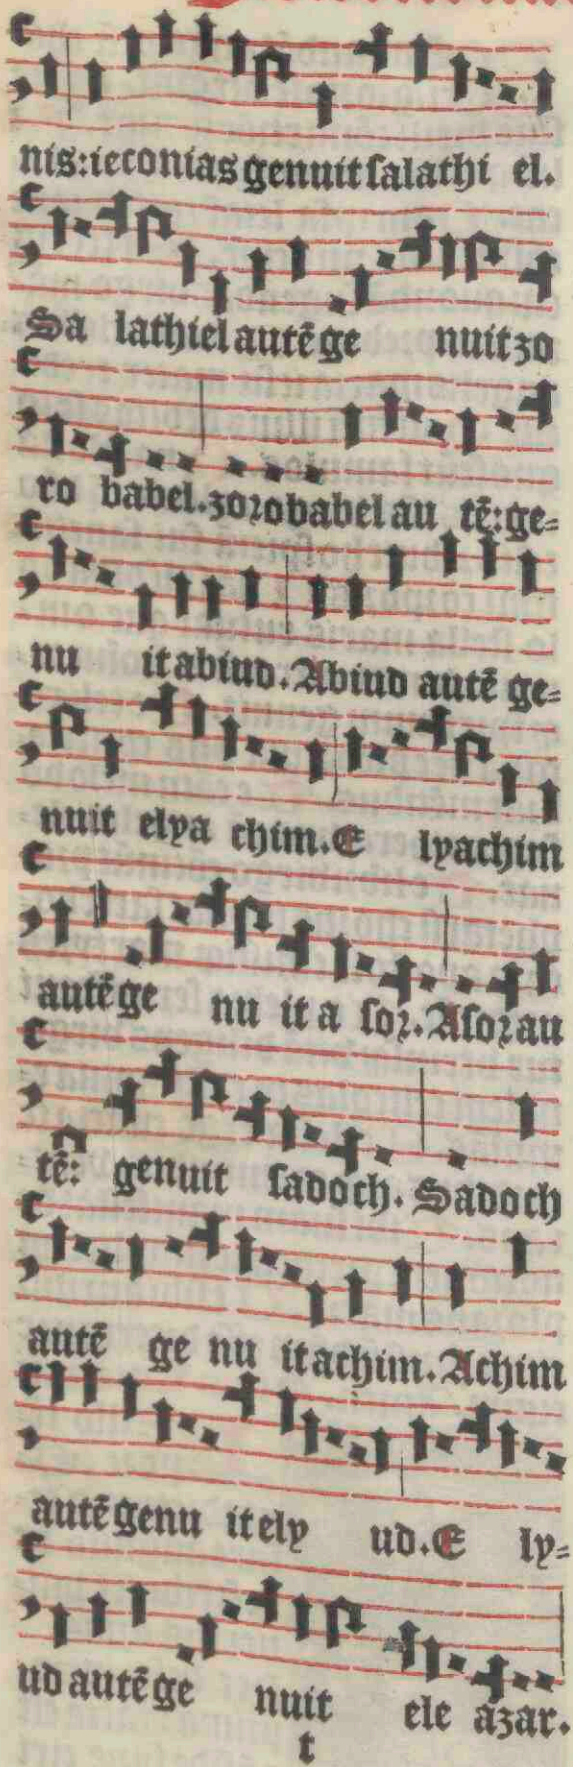 nis:ieconias genuit salathi el.
Sa lathiel autē ge nuit zo
ro babel.zorobabel au tē:ge=
nu it abiud.Abiud autē ge=
nuit elya chim.E lyachim
autē ge nu it a sor.Asor au
tē: genuit sadoch.Sadoch
autē ge nu it achim.Achim
autē genu it ely ud.E ly=
ud autē ge nuit ele azar.
t